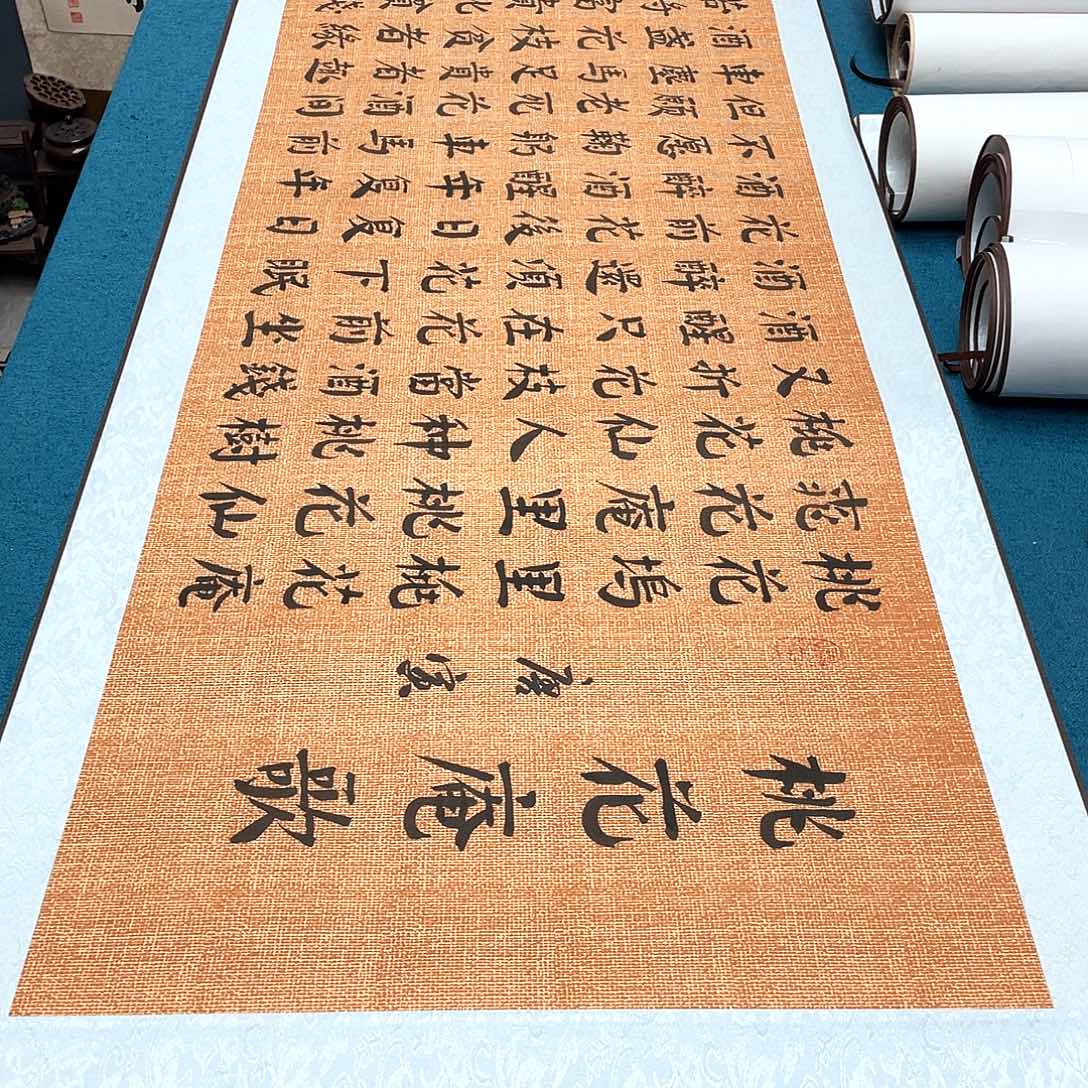 桃花庵歌
唐寅
桃花塢里桃花庵
桃花庵里桃花仙
桃花仙人种桃樹
又折花枝當酒錢
酒醒只在花前坐
酒醉還須花下眠
花前花後日復日
酒醉酒醒年復年
不愿鞠躬車馬前
但願老死花酒間
車塵馬足貴者趣
酒盞花枝貧者緣
若將富貴比貧賤